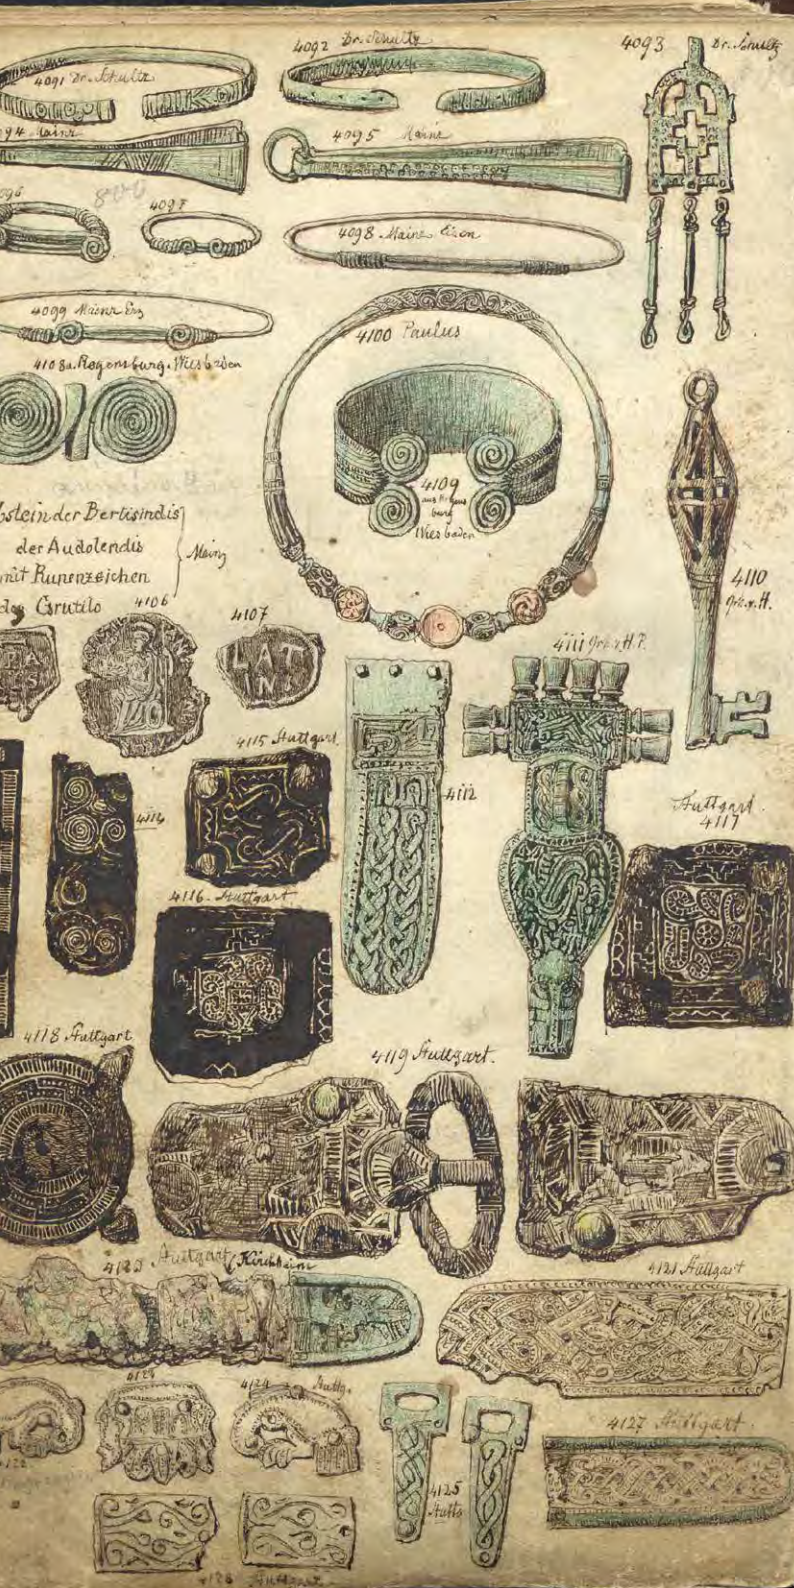 4091 Dr. Schultz
4092 Dr. Schultz
4093 Dr. Schultz
94 Mainz
4095 Mainz
096
4097
4098 Mainz Eisen
4099 Mainz Erz
4100 Paulus
4108a. Regensburg. Wiesbaden
4109
aus Regens
burg
Wiesbaden
bstein der Bertisindis
der Audolendis
mit Runenzeichen
des
Mainz
4110
4106
4107
PA
S
LAT
INI
4111
4112
4114
4115 Stuttgart.
4116. Stuttgart
Stuttgart.
4117
4118 Stuttgart
4119 Stuttgart.
Stuttgart (Kirchheim
4121 Stuttgart
4124
Stuttg.
4125
Stuttg
4127 Stuttgart.
Stuttgart